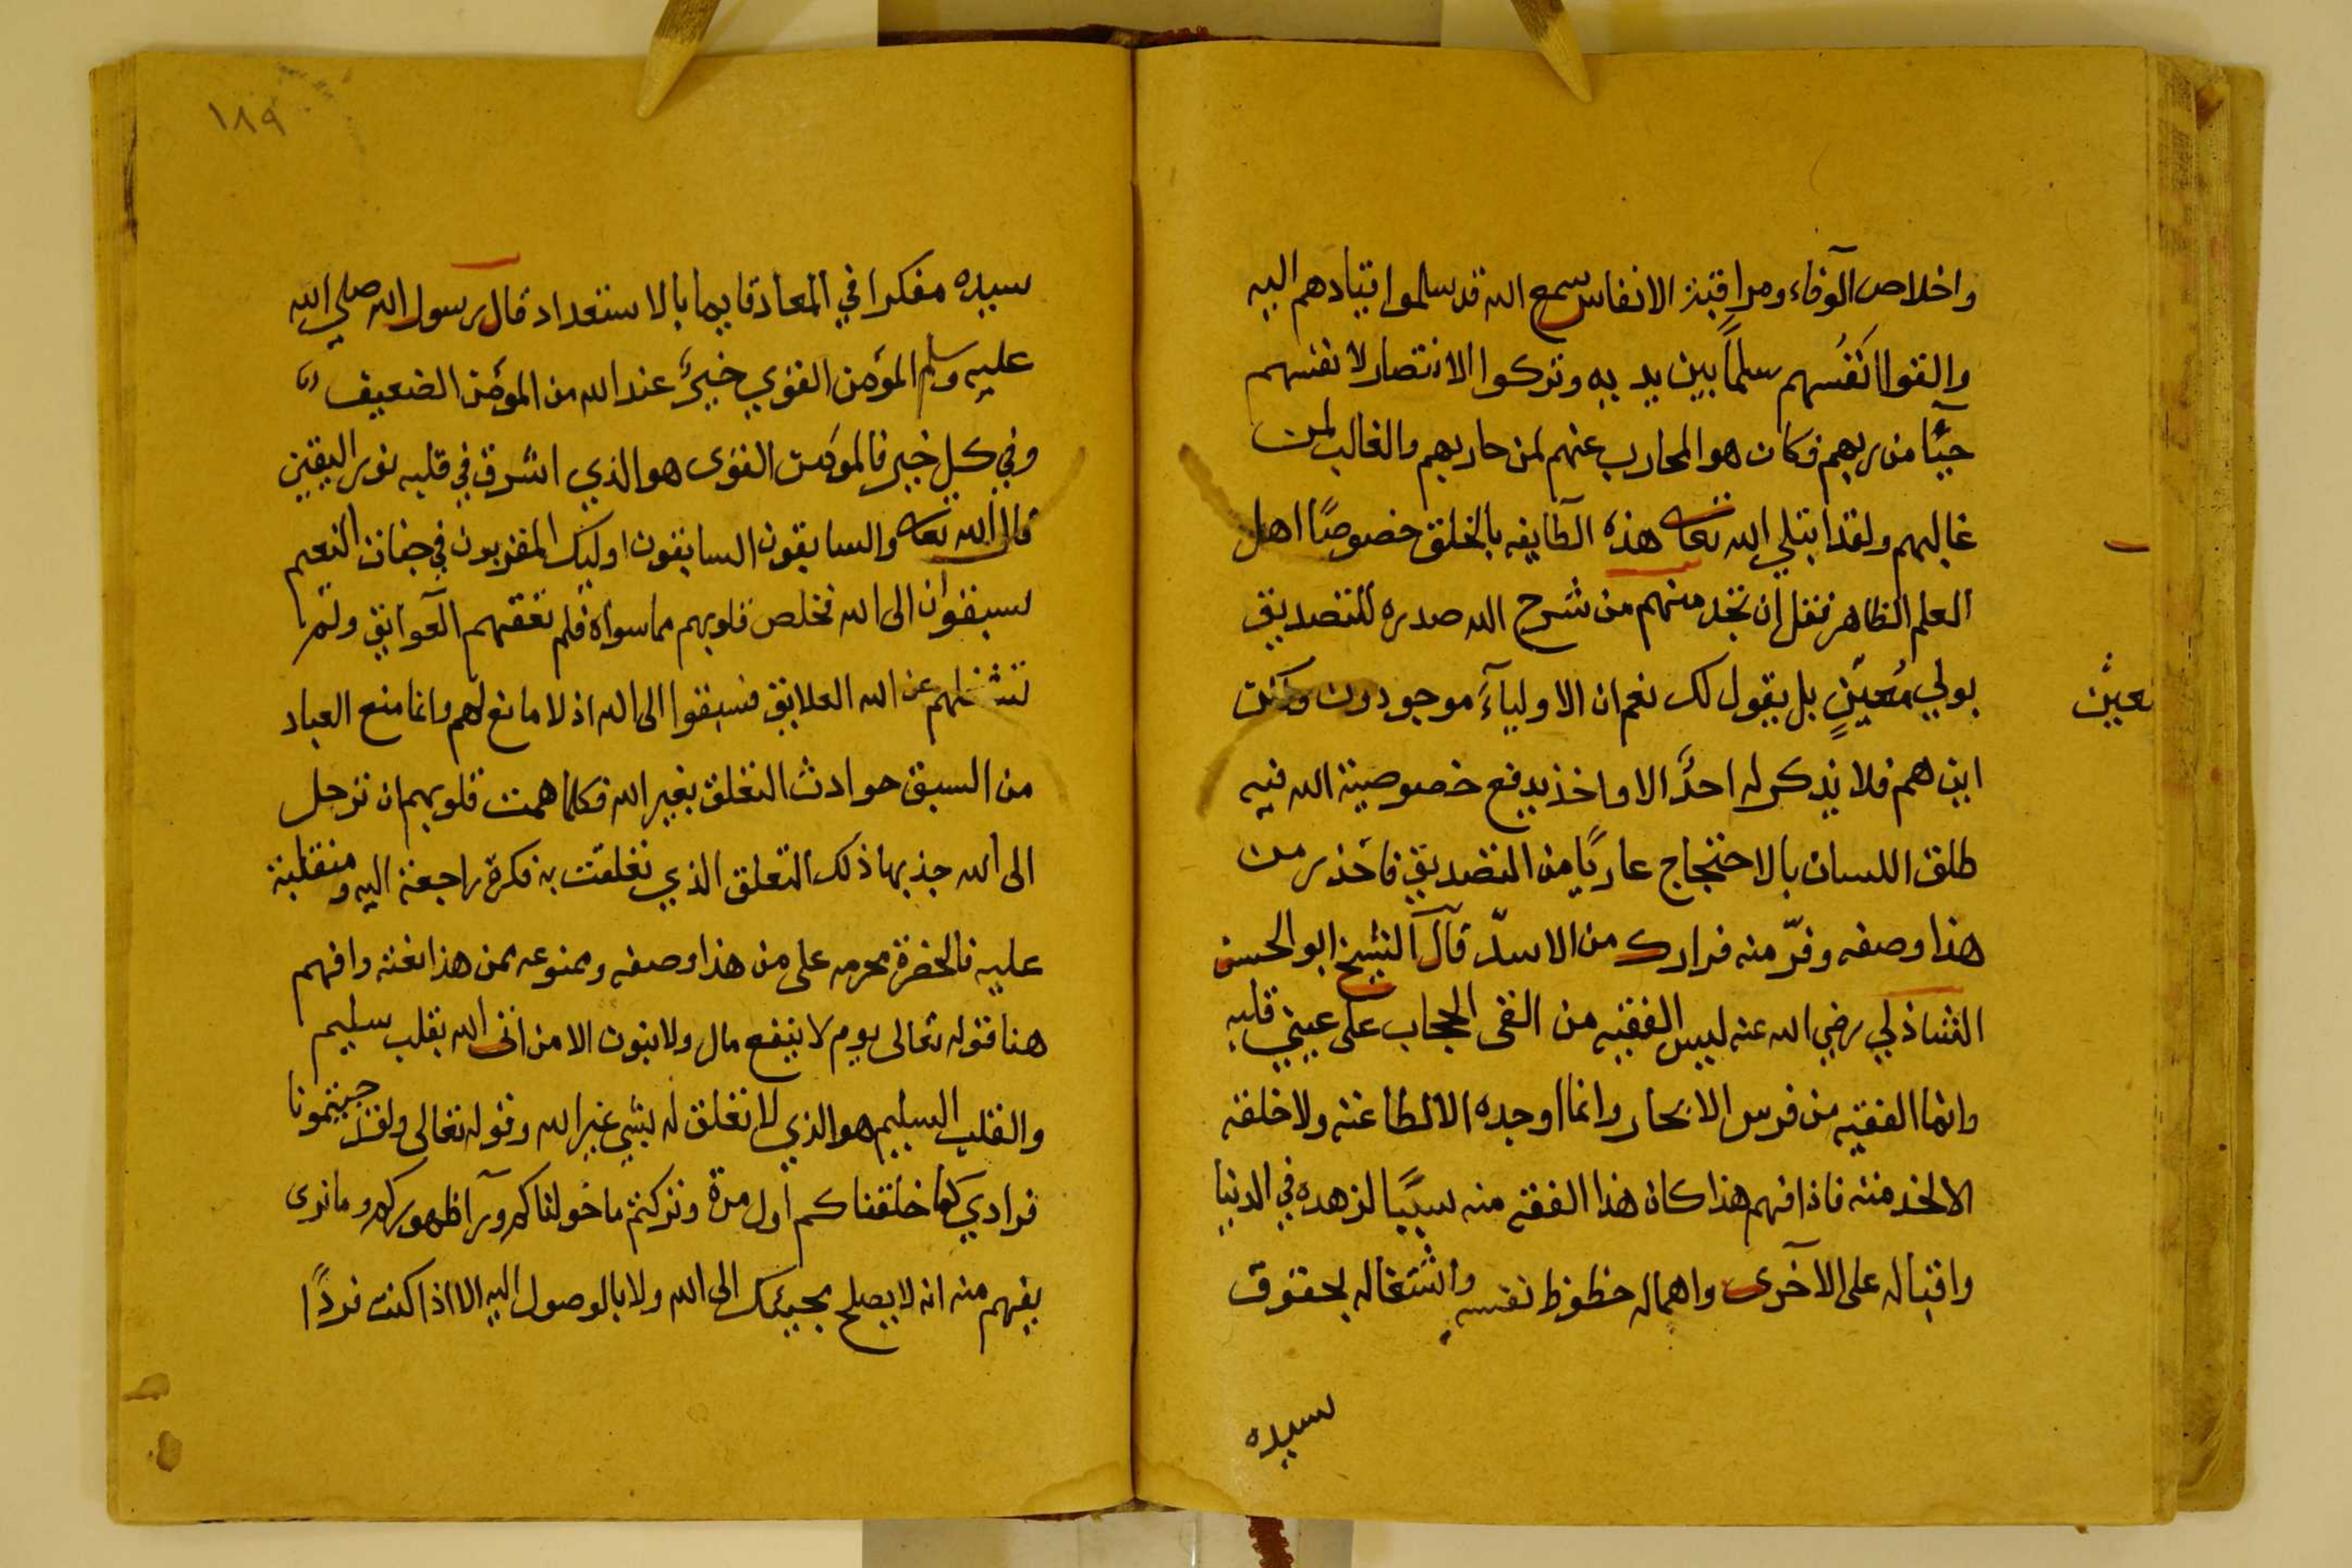 واخلاص الوفاء ومراقبة الانفاس مع الله قد سلموا قيادهم اليه
والقوا انفُسهم سلماً بين يديه وتركوا الانتصار لانفسهم
حيآء من ربهم فكان هو المحارب عنهم لمن حاربهم والغالب لمن
غالبهم ولقد ابتلي الله تعا هذه الطايفه بالخلق خصوصًا اهل
العلم الظاهر فقل ان تجد منهم من شرح الله صدره للتصديق
بولي مُعيّنٍ بل يقول لك نعم ان الاوليآء موجودون ولكن
اين هم فلا يذكر له احدٌ الا واخذ يدفع خصوصية الله فيه
طلق اللسان بالاحتجاج عاريًا من التصديق فاحذر من
هذا وصفه وفرّ منه فرارك من الاسد قال الشيخ ابو الحسن
الشاذلي رضي الله عنه ليس الفقيه من الحجاب على عيني قلبه
وانما الفقيه من الا وانما اوجده الا لطاعته ولا خلقه
الا لخدمته فاذا فهم هذا كان هذا الفقه منه سببًا لزهده في الدنيا
واقباله على الآخرى واهماله حظوظ نفسه واشتغاله بحقوق
سيده
معين
١٨٩
سيده مفكرا في المعاد قايما بالاستعداد قال رسول الله صلي الله
عليه وسلم المؤمن القوي خيرٌ عند الله من المؤمن الضعيف
وفي كل خير فالمؤمن القوى هو الذي اشرق في قلبه نور اليقين
قال الله تعا والسابقون السابقون اوليك المقربون في جنات النعيم
سبقوا الى الله فخلص قلوبهم مما سواه فلم تعقهم العوايق ولم
تشغلهم عن الله العلايق فسبقوا الى الله اذ لا مانع لهم وانما منع العباد
من السبق حوادث التعلق بغير الله فكلما همت قلوبهم ان ترحل
الى الله جذبها ذلك التعلق الذي تعلقت به فكرة راجعة اليه ومنقلبة
عليه فالحضرة محرمه على من هذا وصفه وممنوعه لمن هذا نعته وافهم
هنا قوله تعالى يوم لا ينفع مال ولا بنون الا من اتى الله بقلب سليم
والقلب السليم هو الذي لا تعلق له بشي غير الله وقوله تعالى ولقد جيتمونا
فرادي كما خلقناكم اول مرة وتركتم ما خولناكم ورآ ظهوركم وما نرى
يفهم منه انه لا يصلح مجيئك الى الله ولا بالوصول اليه الا اذا كنت فردًا